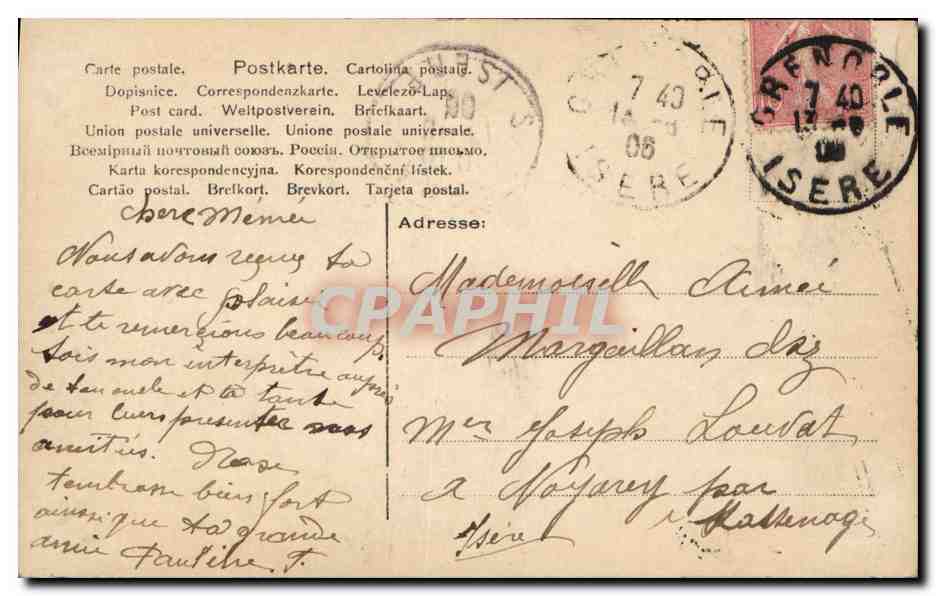 Carte postale. Postkarte. Cartolina postale.
Dopisnice. Correspondenzkarte. Levelező-Lap.
Post card. Weltpostverein. Briefkaart.
Union postale universelle. Unione postale universale.
Всемірный почтовый союзъ. Россія. Открытое письмо.
Karta korespondencyjna. Korespondenční lístek.
Cartão postal. Brefkort. Brevkort. Tarjeta postal.
7 40
06
ISERE
GRENOBLE
7 40
ISERE
chere Mémée
Nous avons reçu ta
carte avec plaisir
et te remercions beaucoup
sois mon interprète auprès
de ton oncle et ta tante
pour leurs presenter nos
amitiés. Rose
t'embrasse bien fort
ainsi que ta grande
amie Pauline F.
Adresse:
Mademoiselle Aimée
Margaillan chez
Mer Joseph Louvat
a Noyarey par
Sassenage
Isère
CPAPHIL